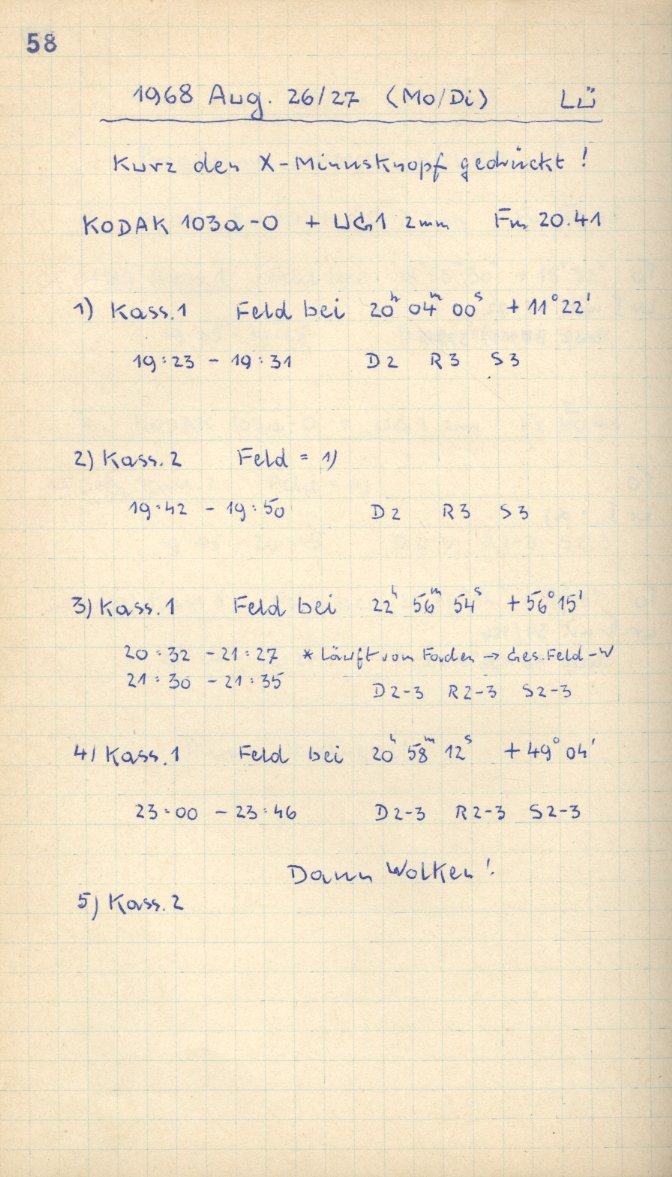 58
1968 Aug. 26/27 (Mo/Di) Lü
Kurz den X-Minusknopf gedrückt!
KODAK 103a-O + UG1 2mm Fm 20.41
1) Kass.1 Feld bei 20ʰ 04ᵐ 00ˢ +11°22'
19:23 - 19:31 D2 R3 S3
2) Kass.2 Feld = 1)
19:42 - 19:50 D2 R3 S3
3) Kass.1 Feld bei 22ʰ 56ᵐ 54ˢ +56°15'
20:32 - 21:27 * läuft vom Faden → Ges.Feld-W
21:30 - 21:35 D2-3 R2-3 S2-3
4) Kass.1 Feld bei 20ʰ 58ᵐ 12ˢ +49°04'
23:00 - 23:46 D2-3 R2-3 S2-3
Dann Wolken!
5) Kass.2